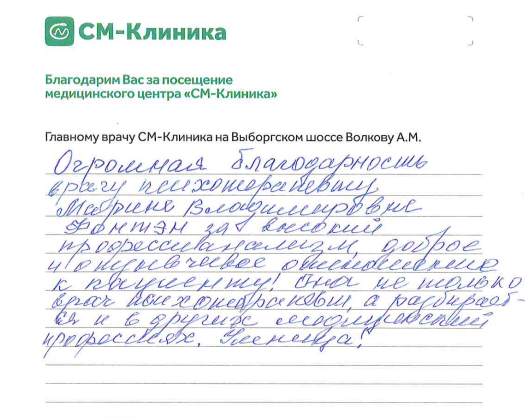 СМ-Клиника
Благодарим Вас за посещение
медицинского центра «СМ-Клиника»
Главному врачу СМ-Клиника на Выборгском шоссе Волкову А.М.
Огромная благодарность
врачу психотерапевту
Марине Владимировне
Фонтэн за высокий
профессионализм, доброе
и отзывчивое отношение
к пациенту! Она не только
врач психотерапевт, а разбирает-
ся и в других медицинских
профессиях. Умница!